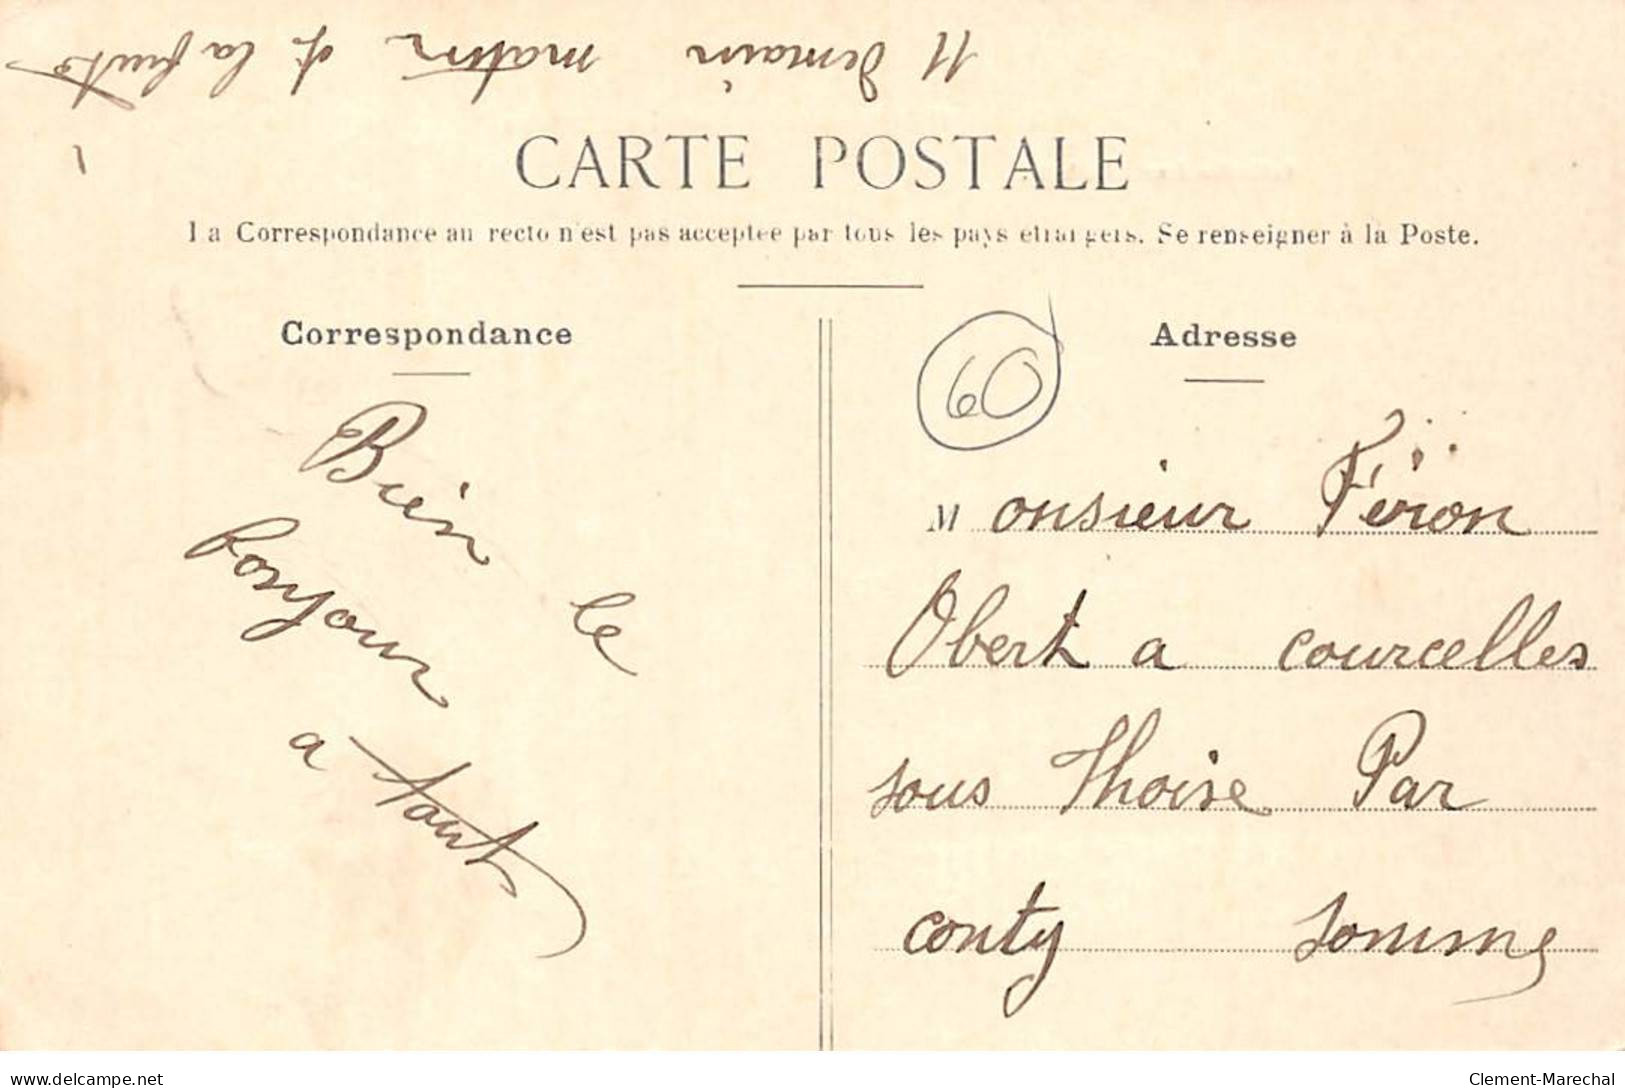 11 demain matin et la
CARTE POSTALE
La Correspondance au recto n'est pas acceptée par tous les pays étrangers. Se renseigner à la Poste.
Correspondance
Bien le
bonjour
a tout
60
Adresse
Monsieur Féron
Obert a courcelles
sous Thoise Par
conty somme
delcampe.net
Clement-Marechal